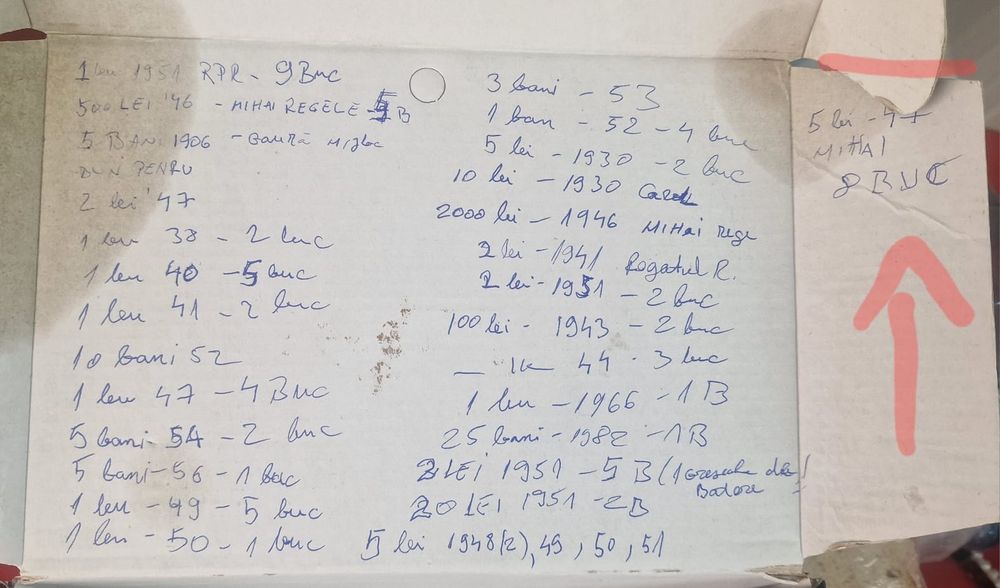 1 leu 1951 RPR - 9 Buc
500 LEI '46 - MIHAI REGELE - 5 B
5 BANI 1906 - GAURĂ MIJLOC
2 lei '47
1 leu 38 - 2 buc
1 leu 40 - 5 buc
1 leu 41 - 2 buc
10 bani 52
1 leu 47 - 4 Buc
5 bani - 54 - 2 buc
5 bani - 56 - 1 buc
1 leu - 49 - 5 buc
1 leu - 50 - 1 buc
3 bani - 53
1 ban - 52 - 4 buc
5 lei - 1930 - 2 buc
10 lei - 1930 Carol
2000 lei - 1946 MIHAI rege
2 lei - 1941 Regatul R.
2 lei - 1951 - 2 buc
100 lei - 1943 - 2 buc
44 - 3 buc
1 leu - 1966 - 1 B
25 bani - 1982 - 1 B
3 LEI 1951 - 5 B (1
20 LEI 1951 - 2 B
5 lei 1948 (2), 49, 50, 51
5 lei - 47
MIHAI
8 BUC